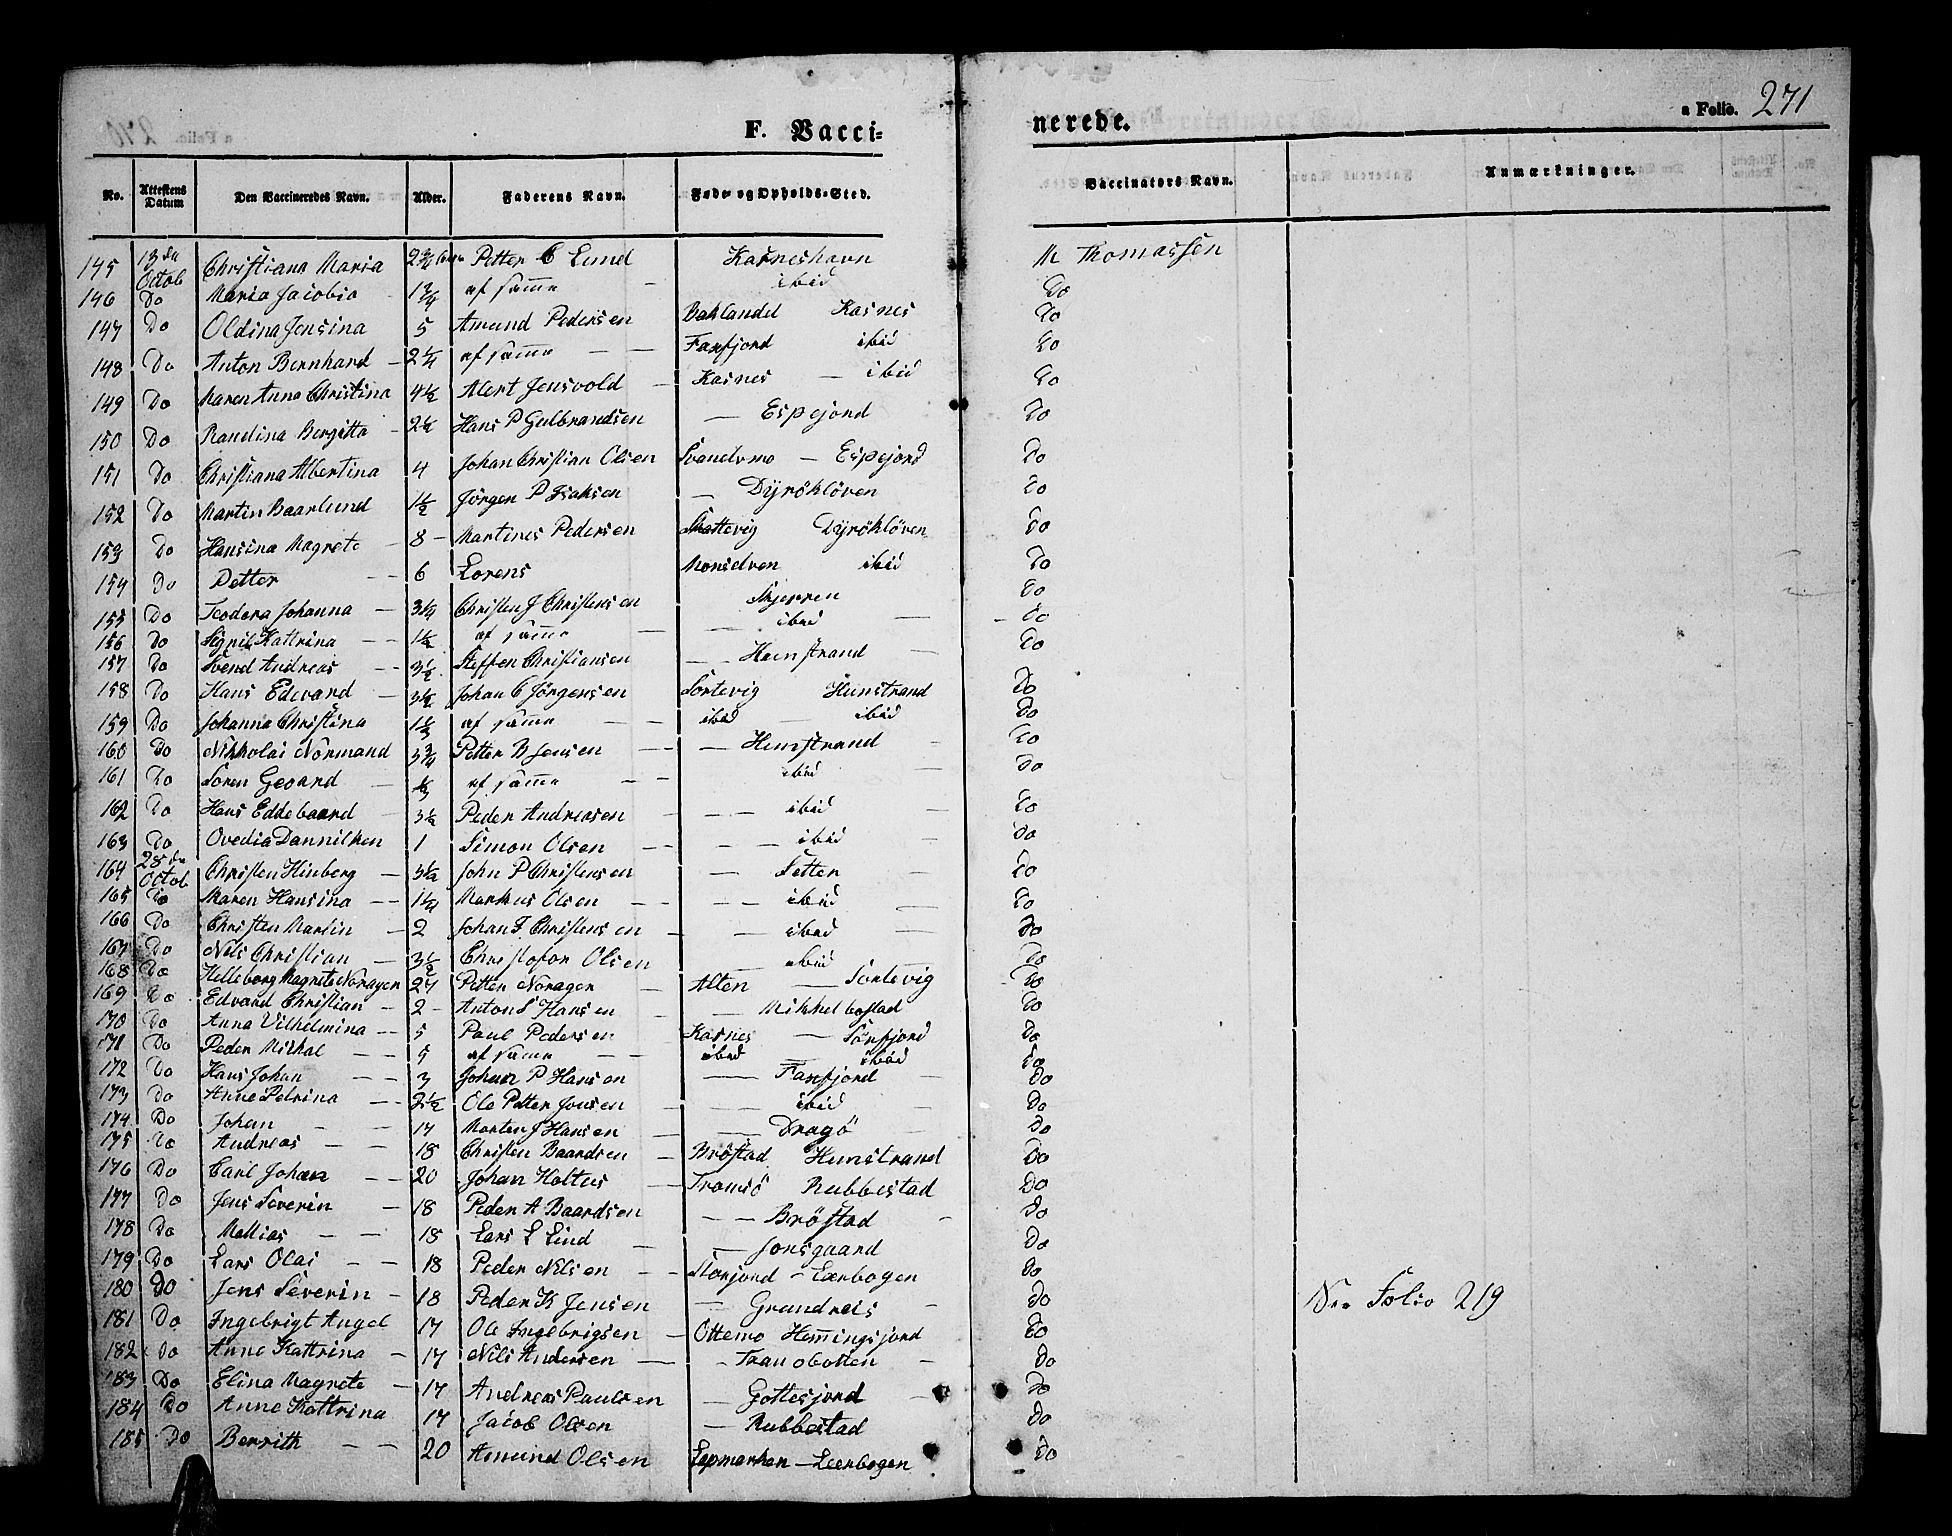 F. Vacci-
nerede.
a Folio. 271
No. Attestens Datum Den Vaccineredes Navn. Alder. Faderens Navn. Føde- og Opholds-Sted. Vaccinators Navn. Anmærkninger.
145 13de Octob Christiana Maria 2 3/4 Petter C Lund Kasneshavn M Thomassen
146 Do Maria Jacobia af samme ibid Do
147 Do Oldina Jensina 5 Amund Pedersen Baklandet Kasnes Do
148 Do Anton Bernhard 2 1/4 af samme Faxfjord ibid Do
149 Do Maren Anna Christina 4 1/2 Alert Jensvold Kasnes — ibid Do
150 Do Randina Bergitta 2 1/2 Hans P Gulbrandsen — Espejord Do
151 Do Christiana Albertina 4 Johan Christian Olsen — Espejord Do
152 Do Martin Baarlund 1 1/2 Jörgen P Isaksen — Dyröklöven Do
153 Do Hansina Magrete 8 Martines Pedersen Skattevig Dyröklöven Do
154 Do Petter 6 Lorens Monselven ibid Do
155 Do Teodora Johanna 3 1/4 Christen J Christensen Skjerren Do
156 Do Signil Kattrina 1 1/2 af samme ibid Do
157 Do Svend Andreas 3 1/2 Steffen Christiansen Hemstrand Do
158 Do Hans Edevard 3 1/2 Johan C Jörgensen Sörtevig Hunstrand Do
159 Do Johanna Christina af samme ibid ibid Do
160 Do Nikkolai Normand 3 3/4 Petter B Jensen Hemstrand Do
161 Do Sören Geoard af samme ibid Do
162 Do Hans Eddebaard 3 1/2 Peder Andreasen ibid Do
163 Do Ovedia Dannilken 1 Simon Olsen ibid Do
164 28de Octob Christen Hinberg 3 1/2 John P Christensen Setten Do
165 Do Maren Hansina Markus Olsen ibid Do
166 Do Christen Martin 2 Johan F Christensen ibid Do
167 Do Nils Christian 3 1/2 Christofor Olsen ibid Do
168 Do Helleborg Magrete Noragen Petter Noragen Alten — Sörtevig Do
169 Do Edvard Christian 2 Anton S Hansen Mikkelbostad Do
170 Do Anna Vilhelmina 5 Paul Pedersen Kasnes — Sörfjord Do
171 Do Peder Mickal 5 af samme ibid ibid Do
172 Do Hans Johan 3 Johan P Hansen Faxfjord Do
173 Do Anne Petrina 2 1/2 Ole Petter Jonsen ibid Do
174 Do Johan 17 Morten J Hansen Dragö Do
175 Do Andreas 18 Christen Baardsen Bröstad Hemstrand Do
176 Do Carl Johan 20 Johan Holtus Tromsö Rubbestad Do
177 Do Jens Severin 18 Peder A Baardsen Bröstad Do
178 Do Mattias 18 Lars L Lind Jonsgaard Do
179 Do Lars Olai 18 Peder Nilsen Storjord — Leerbogen Do
180 Do Jens Severin 18 Peder K Jensen Grundreis Do Se Folio 219
181 Do Ingebrigt Angel 17 Ole Ingebrigsen Ottemo Hemmingsjord Do
182 Do Anne Kattrina 17 Nils Andersen Tranobotten Do
183 Do Elina Magrete 17 Andreas Paulsen Gottesjord Do
184 Do Anne Kattrina 17 Jacob Olsen Rubbestad Do
185 Do Berrith 20 Amund Olsen Lapmarken — Leerbogen Do